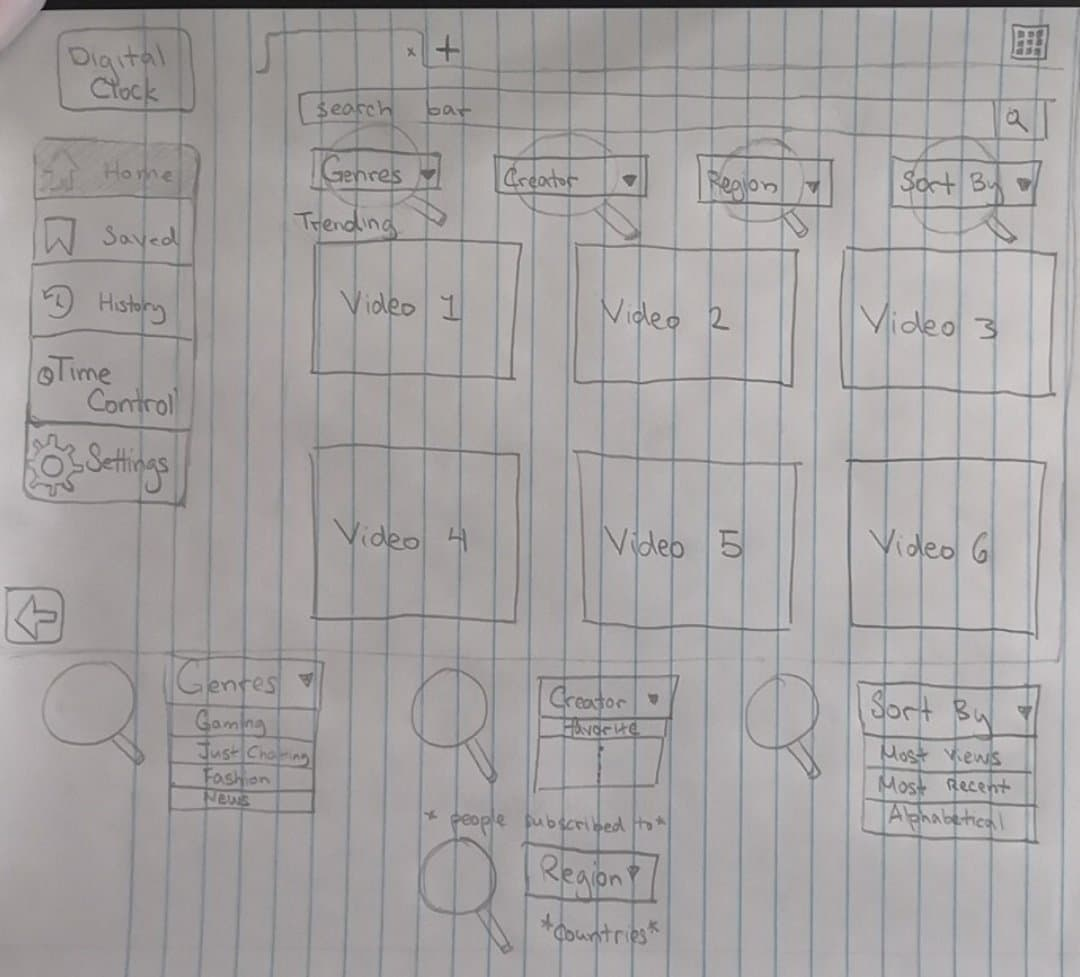 Digital
Clock
x +
search bar
Home
Saved
History
Time
Control
Settings
Genres
Creator
Region
Sort By
Trending
Video 1
Video 2
Video 3
Video 4
Video 5
Video 6
Genres
Gaming
Just Chatting
Fashion
News
Creator
Favorite
* people subscribed to *
Region
*Countries*
Sort By
Most Views
Most Recent
Alphabetical